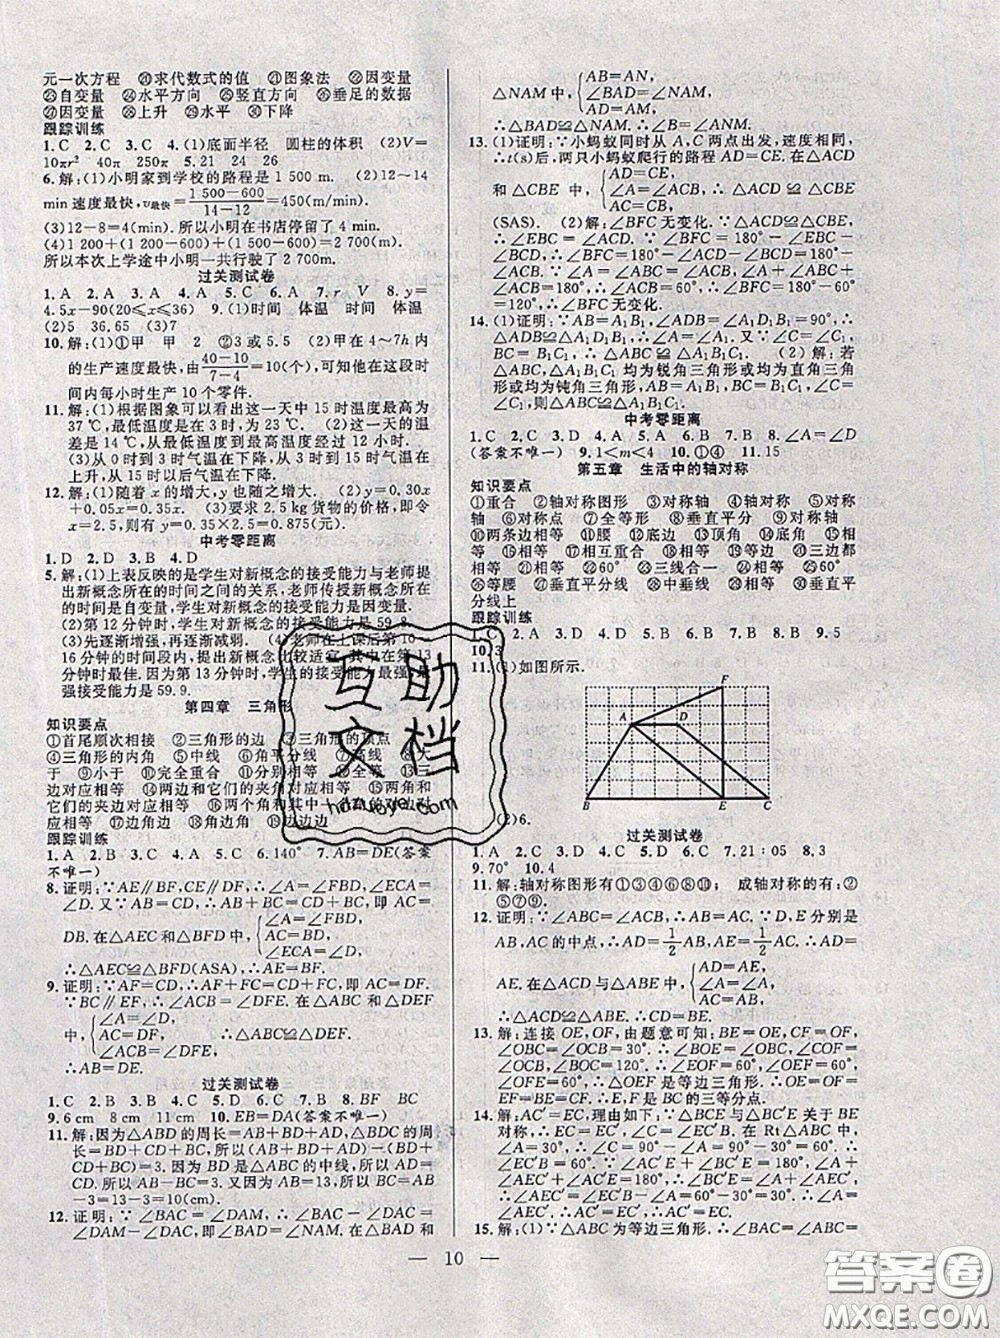 元一次方程 ⑳求代数式的值 ㉑图象法 ㉒因变量
㉓自变量 ㉔水平方向 ㉕竖直方向 ㉖垂足的数据
㉗因变量 ㉘上升 ㉙水平 ㉚下降
跟踪训练
1.C 2.C 3.C 4.(1)底面半径 圆柱的体积 (2)V=
10πr² 40π 250π 5.21 24 26
6.解:(1)小明家到学校的路程是1 500 m. (2)12~14
min速度最快,v最快=(1 500-600)/(14-12)=450(m/min).
(3)12-8=4(min). 所以小明在书店停留了4 min.
(4)1 200+(1 200-600)+(1 500-600)=2 700(m).
所以本次上学途中小明一共行驶了2 700 m.
过关测试卷
1.A 2.B 3.A 4.A 5.C 6.A 7.r V 8.y=
4.5x-90(20≤x≤36) 9.(1)时间 体温 时间 体温
(2)5 36.65 (3)7
10.解:(1)①甲 甲 2 ②3或5.5 (2)甲在4~7h内
的生产速度最快,由(40-10)/(7-4)=10(个),可知他在这段时
间内每小时生产10个零件.
11.解:(1)根据图象可以看出这一天中15时温度最高为
37 ℃,最低温度是在3时,为23 ℃. (2)这一天的温
差是14 ℃,从最低温度到最高温度经过12小时.
(3)0时到3时及15时到24时气温在下降,3时到15时气温在
上升.
12.解:(1)随着x的增大,y也增大. (2)y=0.3x
+0.05x=0.35x. (3)求2.5 kg货物的价格,即令
x=2.5,则y=0.35×2.5=0.875(元).
中考零距离
1.D 2.D 3.B 4.D
5.解:(1)上表反映的是学生对新概念的接受能力与老师传授新概念
所在的时间之间的关系,老师传授新概念所在的时间是自变量,学生对新概念的接受能力是因变量.
(2)第12分钟时,学生对新概念的接受能力是59.8.
(3)先逐渐增强,再逐渐减弱. (4)老师在上课后第10
~16分钟的时间段内,提出新概念比较适宜,其中在第13
分钟时最佳.因为第13分钟时,学生的接受能力最强,最
强接受能力是59.9.
第四章 三角形
知识要点
①首尾顺次相接 ②三角形的边 ③三角形的顶点
④三角形的内角 ⑤中线 ⑥角平分线 ⑦高线 ⑧大
于 ⑨小于 ⑩完全重合 ⑪相等 ⑫全等 ⑬三边对应
相等 ⑭两边和它们的夹角对应相等 ⑮两角和
它们的夹边对应相等 ⑯两个角和其中一个角的对边对
应相等 ⑰边角边 ⑱角边角
跟踪训练
1.A 2.B 3.C 4.C 5.C 6.140° 7.AB=DE(答案
不唯一)
8.证明:∵AE∥BF,∴∠A=∠FBD,∠ECA=
∠D. 又∵AB=CD,∴AB+BC=CD+BC,即AC=
DB. 在△AEC和△BFD中,{∠A=∠FBD, AC=BD, ∠ECA=∠D,
∴△AEC≌△BFD(ASA). ∴AE=BF.
9.证明:∵AF=CD,∴AF+FC=CD+FC,即AC=DF.
∵BC∥EF,∴∠ACB=∠DFE. 在△ABC和△DEF
中,{∠A=∠D, AC=DF, ∠ACB=∠DFE, ∴△ABC≌△DEF.
∴AB=DE.
过关测试卷
1.C 2.C 3.B 4.A 5.D 6.C 7.B 8.BF BC
9.6 cm 8 cm 11 cm 10.EB=DA(答案不唯一)
11.解:因为△ABD的周长=AB+BD+AD,△BDC的周
长=BD+CD+BC,所以(AB+BD+AD)-(BD+
CD+BC)=3. 因为BD是△ABC的中线,所以AD=
CD. 所以AB-BC=3. 因为AB=13,所以BC=AB
-3=13-3=10(cm).
12.证明:∵∠BAC=∠DAM,∴∠BAC-∠DAC=
∠DAM-∠DAC,即∠BAD=∠NAM. 在△BAD和
△NAM中,{AB=AN, ∠BAD=∠NAM, AD=AM,
∴△BAD≌△NAM. ∴∠B=∠ANM.
13.(1)证明:∵小蚂蚁同时从A,C两点出发,速度相同,
∴t(s)后,两只小蚂蚁爬行的路程AD=CE. 在△ACD
和△CBE中,{AD=CE, ∠A=∠ACB, AC=CB, ∴△ACD≌△CBE
(SAS). (2)解:∠BFC无变化. ∵△ACD≌△CBE,
∴∠EBC=∠ACD. ∵∠BFC=180°-∠EBC-
∠BCD,∴∠BFC=180°-∠ACD-∠BCD=180°-
∠ACB. ∵∠A=∠ACB=60°,∴∠BFC=180°-60°
=120°,∴∠BFC无变化.
14.(1)证明:∵AB=A₁B₁,∠ADB=∠A₁D₁B₁=90°,∴
△ADB≌△A₁D₁B₁. ∴∠A=∠A₁. 又∵∠C=∠C₁,
BC=B₁C₁,∴△ABC≌△A₁B₁C₁. (2)解:若
△ABC与△A₁B₁C₁均为锐角三角形或均为直角三角
形或均为钝角三角形,AB=A₁B₁,BC=B₁C₁,∠C
=∠C₁,则△ABC≌△A₁B₁C₁.
中考零距离
1.C 2.C 3.D 4.A 5.A 6.B 7.B 8.∠A=∠D
(答案不唯一) 9.1<m<4 10.①④ 11.15
第五章 生活中的轴对称
知识要点
①重合 ②轴对称图形 ③对称轴 ④轴对称 ⑤对称
轴 ⑥对称点 ⑦全等形 ⑧垂直平分 ⑨对称轴
⑩两条边相等 ⑪底边 ⑫顶角 ⑬底角 ⑭相
等 ⑮相等 ⑯相等 ⑰相互重合 ⑱相等 ⑲三边都
相等 ⑳相等 ㉒60° ㉓三线合一 ㉔相等 ㉕60°
㉖等腰 ㉗垂直平分线 ㉘中垂线 ㉙相等 ㉚垂直平
分线上
跟踪训练
1.C 2.A 3.D 4.D 5.A 6.B 7.B 8.B 9.5
10.3
11.(1)如图所示.
F
A D
B E C
(2)6.
过关测试卷
1.A 2.C 3.D 4.C 5.D 6.C 7.21:05 8.3
9.70° 10.4
11.解:轴对称图形有①③④⑥⑧⑩, 成轴对称的有:②
⑤⑦⑨.
12.证明:∵∠ABC=∠ACB,∴AB=AC. ∵D,E分别是
AB,AC的中点,∴AD=1/2AB,AE=1/2AC. ∴AD=
AE. 在△ADC与△AEB中,{AD=AE, ∠A=∠A, AC=AB,
∴△ADC≌△AEB. ∴CD=BE.
13.解:连接OE,OF,由题意可知:BE=OE,CF=OF,
∠OBC=∠OCB=30°. ∴∠BOE=∠OBE=∠COF=
∠OCF=30°,∠BOC=120°. ∴∠EOF=60°,∠OEF=60°,
∠OFE=60°. ∴△OEF是等边三角形. ∴OE=OF
=EF=BE=CF. ∴E,F是BC的三等分点.
14.解:AC′=EC′. 理由如下:∵△BCE与△BC′E关于BE
对称,∴EC=EC′,∠BC′E=∠C. 在Rt△ABC中,
∠A=30°,∴∠C=90°-∠A=90°-30°=60°,
∴∠BC′E=60°. ∵∠BC′E+∠AC′E=180°,
∴∠AC′E=180°-60°=120°. ∴∠AEC′=180°-∠A
-∠AC′E=30°. ∴∠A=∠AEC′. ∴AC′=EC′.
15.解:(1)∵△ABC为等边三角形. ∴∠BAC=∠ABC=
— 10 —
互助文档
hdzuoye.com
答案圈
MXQE.COM